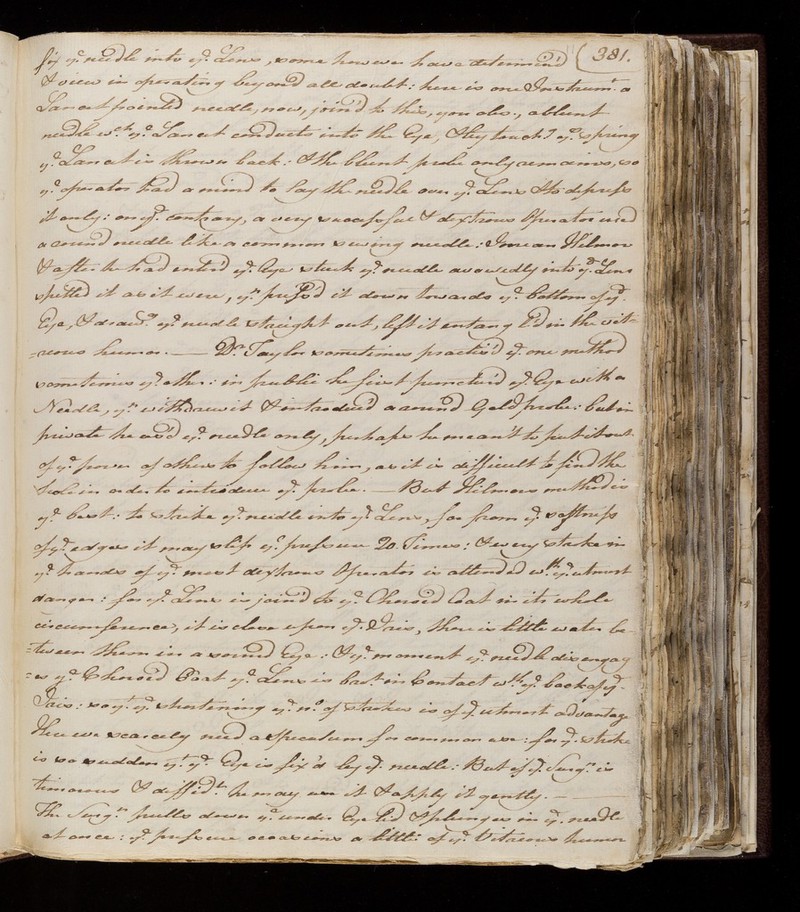 fix ye. needle into ye. Lens, some however have determin'd (381.
& view in operating beyond all doubt: here is one Instrumt. a
Lancet pointed needle, now, join'd to this, you obs., a blunt
needle wch. ye. Lancet conducts into the Eye, they touch? ye. spring
ye. Lancet is thrown back: & the blunt probe only remains, so
ye. operator had a mind to lay the needle over ye. Lens & to depress
it only: on ye. contrary, a very successful & dextrous Operator used
a round needle like a common sewing needle: I mean Hilmer
& after he had enter'd ye. Eye stuck ye. needle avowedly into ye. Lens
spitted it as it were, yn. press'd it down towards ye. bottom of ye.
Eye, & drawg. ye. needle straight out, left it entangl'd in the vit-
=reous humor. — Dr. Taylor sometimes practis'd ye. one method
sometimes ye. other: in public he first punctur'd ye. Eye with a
Needle, yn. withdrew it & introduc'd a round Gold probe: but in
private he us'd ye. needle only, perhaps he meant to put it out
of ye. power of others to follow him, as it is difficult to find the
hole in order to introduce ye. probe. — But Hilmers method is
ye. best: to strike ye. needle into ye. Lens, for from ye. softness
of ye. edges it may slip ye. pressure 20. Times: & every stroke in
ye. hands of ye. most dextrous Operator is attended wth. ye. utmost
danger: for ye. Lens is join'd to ye. Choroid Coat in its whole
circumference, it is close upon ye. Iris, there is little water be-
=tween them in a sound Eye: & ye. moment ye. needle disengag
=es ye. Choroid Coat ye. Lens is in Contact wth. ye. back of ye.
Iris: so yt. ye. shortening ye. no. of strokes is of ye. utmost advantage
Here we scarcely need a Speculum for common use: for ye. stroke
is so sudden yt. ye. Eye is fix'd by ye. needle: But if ye. Surgn. is
timorous & diffidt. he may use it & apply it gently. —
The Surgn. pulls down ye. under Eye lid & plunges in ye. needle
at once: ye. pressure occasions a little of ye. Vitreous humor